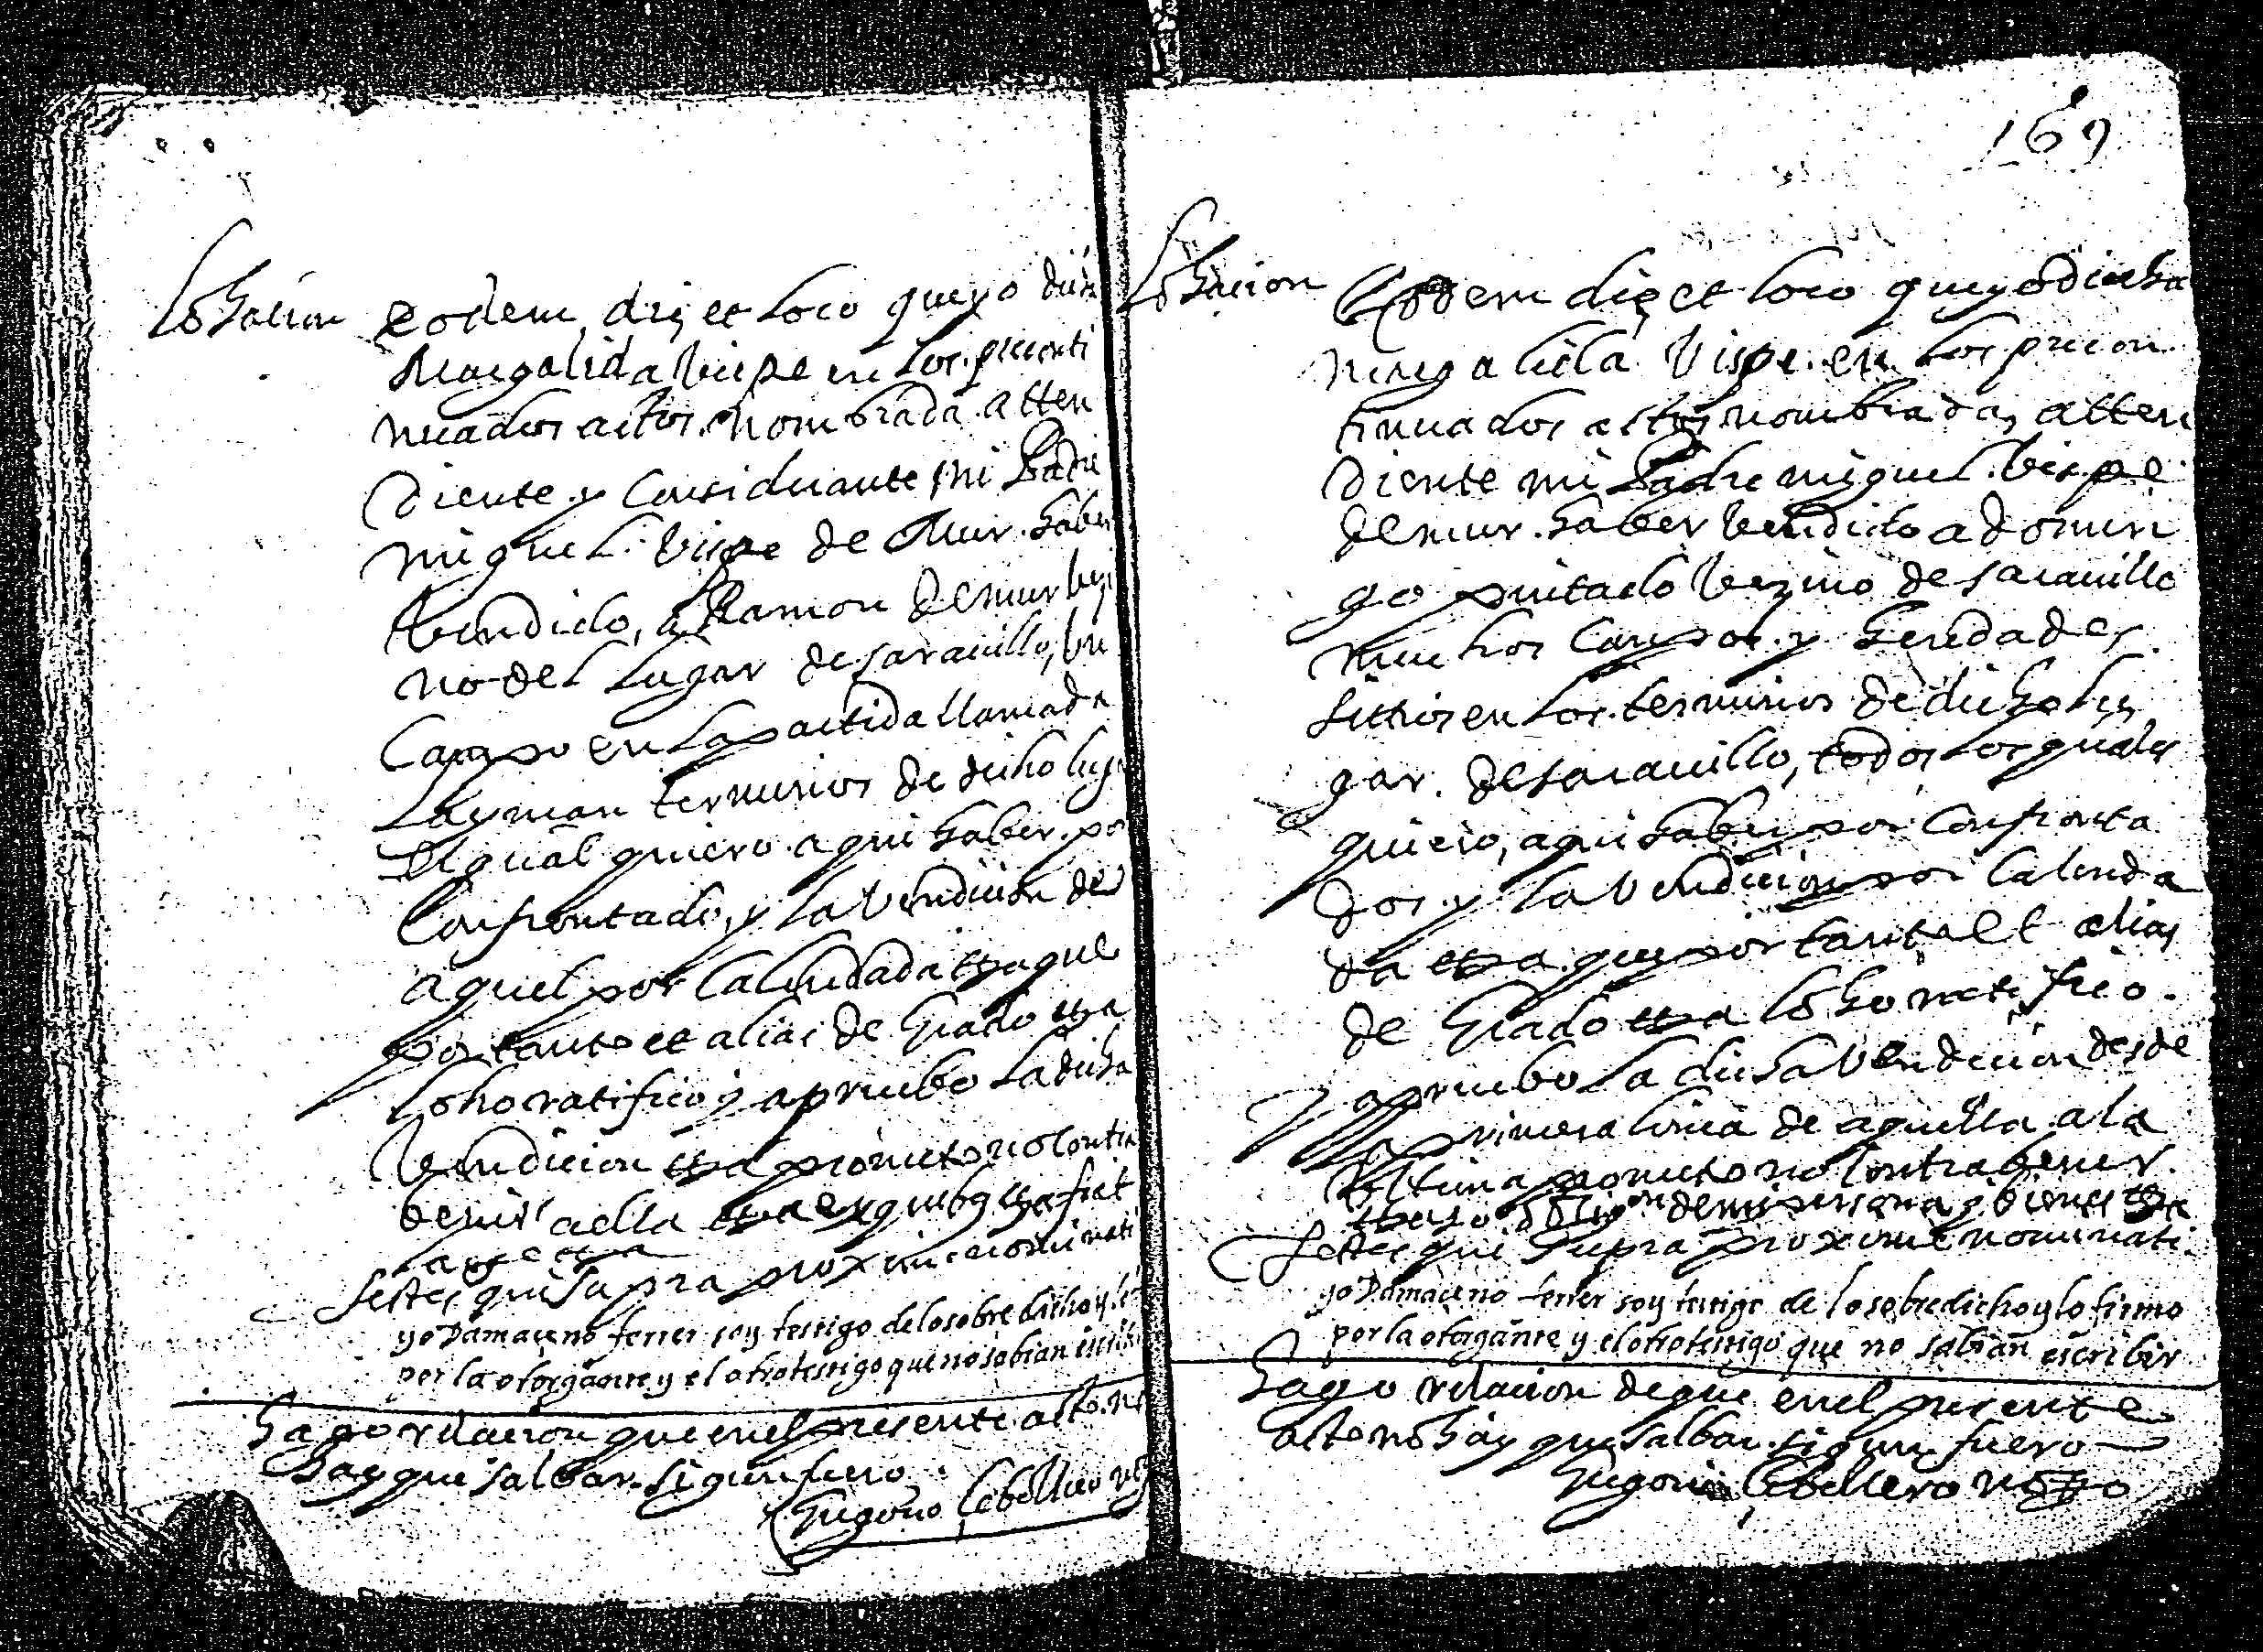 Lohacion
eodem die et loco que yo dicha
Margalida Vispe en los preconti
nuados actos nombrada atten
diente y considerante mi Padre
Miguel Vispe de Mur haber
bendido, a Ramon de mur bezi
no del Lugar de saravillo, un
Campo en la partida llamada
Layman terminos de dicho luga
el qual quiero aqui haber por
Confrontado, y la Vendicion de
aquel por calendada etta que
por tanto et alias de Grado etta
loho ratifico y apruebo la dicha
Vendicion etta prometo no contra
benir a ella etta ex quibus etta fiat
large etta
testes qui supra proxime nominati
yo Damaçeno ferrer soy testigo de lo sobredicho y lo
por la otorgante y el otro testigo que no sabian escribir
Hago relacion que en el presente acto no
hay que salbar sigun fuero
Gregorio Cebollero no
169
Lohacion
Eodem die et loco que yo dicha
Margalida Vispe en los precon
tinuados actos nombrada, atten
diente mi Padre miguel Vispe
de mur haber bendido a domin
go pintado bezino de saravillo
muchos Campos y heredades
sitios en los terminos de dicho lu
gar de saravillo, todos los quales
quiero, aqui haber por confronta
dos y la Vendicion por Calenda
da etta que por tanto et alias
de Grado etta loho ratifico
y apruebo la dicha Vendicion desde
la primera linia de aquella a la
ultima prometo no contrabenir
etta so obligon de mi persona y bienes etta
testes qui supra proxime nominati
yo Damaçeno ferrer soy testigo de lo sobredicho y lo firmo
por la otorgante y el otro testigo que no sabian escribir
Hago relacion de que en el presente
acto no hay que salbar sigun fuero
Gregorio Cebollero noto